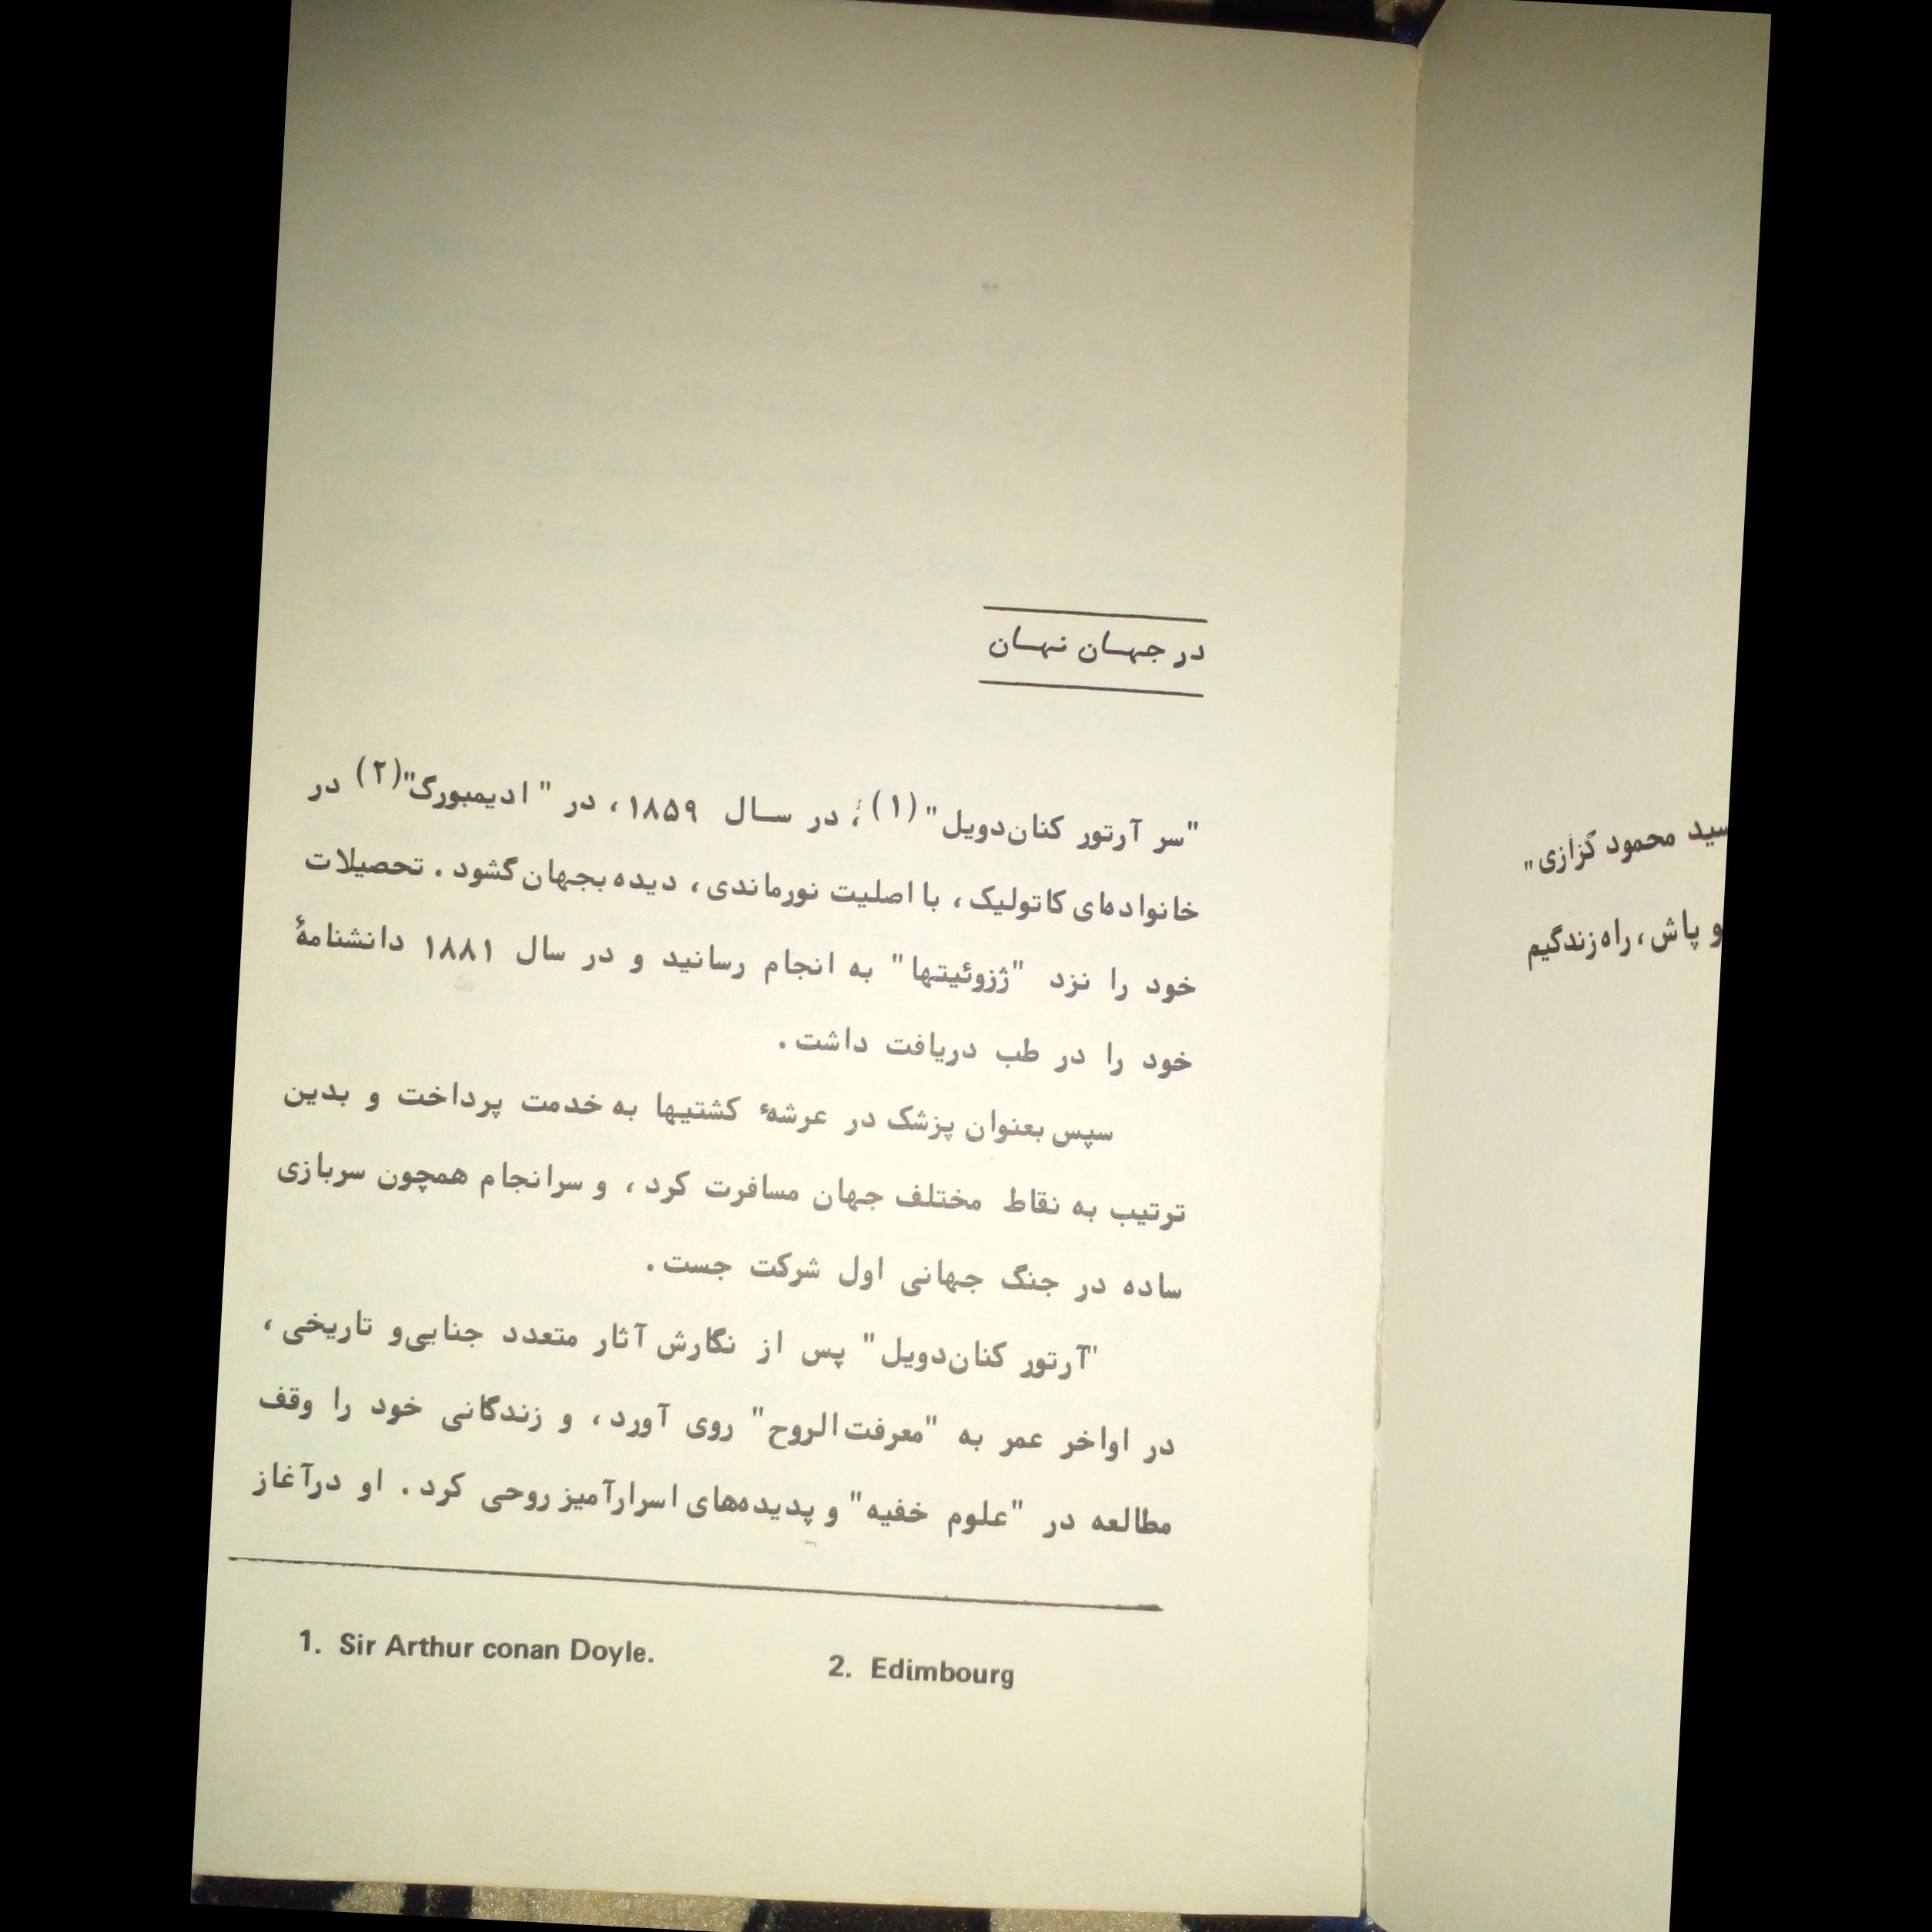 سید محمود کزازی"
و پاش، راه زندگیم
در جهان نهان
"سر آرتور کنان‌دویل" (۱)، در سال ۱۸۵۹، در "ادیمبورگ" (۲) در
خانواده‌ای کاتولیک، با اصلیت نورماندی، دیده بجهان گشود. تحصیلات
خود را نزد "ژزوئیتها" به انجام رسانید و در سال ۱۸۸۱ دانشنامهٔ
خود را در طب دریافت داشت.
سپس بعنوان پزشک در عرشهٔ کشتیها به خدمت پرداخت و بدین
ترتیب به نقاط مختلف جهان مسافرت کرد، و سرانجام همچون سربازی
ساده در جنگ جهانی اول شرکت جست.
"آرتور کنان‌دویل" پس از نگارش آثار متعدد جنایی و تاریخی،
در اواخر عمر به "معرفت‌الروح" روی آورد، و زندگانی خود را وقف
مطالعه در "علوم خفیه" و پدیده‌های اسرارآمیز روحی کرد. او درآغاز
1. Sir Arthur conan Doyle. 2. Edimbourg